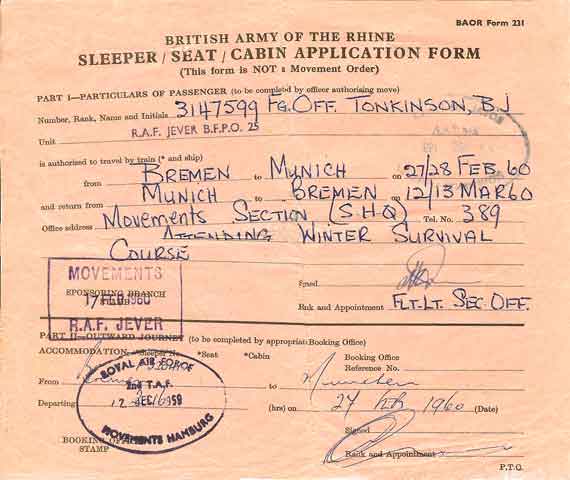 BAOR Form 231
BRITISH ARMY OF THE RHINE
SLEEPER / SEAT / CABIN APPLICATION FORM
(This form is NOT a Movement Order)
PART I—PARTICULARS OF PASSENGER (to be completed by officer authorising move)
Number, Rank, Name and Initials 3147599 FG. OFF. TONKINSON, B.J
Unit R.A.F. JEVER B.F.P.O. 25
is authorised to travel by train (* and ship)
from BREMEN to MUNICH on 27/28 FEB 60
and return from MUNICH to BREMEN on 12/13 MAR 60
Office address MOVEMENTS SECTION (SHQ) Tel. No. 389
ATTENDING WINTER SURVIVAL
COURSE
Signed
SPONSORING BRANCH
STAMP
MOVEMENTS
17 FEB 1960
R.A.F. JEVER
Rank and Appointment FLT-LT. SEC. OFF.
PART II—OUTWARD JOURNEY (to be completed by appropriate Booking Office)
ACCOMMODATION: *Sleeper No *Seat *Cabin
Booking Office
Reference No.
From Bremen to Muenchen
Departing (hrs) on 27 Feb 1960 (Date)
ROYAL AIR FORCE
2nd T.A.F.
12 DEC 1959
MOVEMENTS HAMBURG
Signed
BOOKING OFFICE
STAMP
Rank and Appointment
P.T.O.